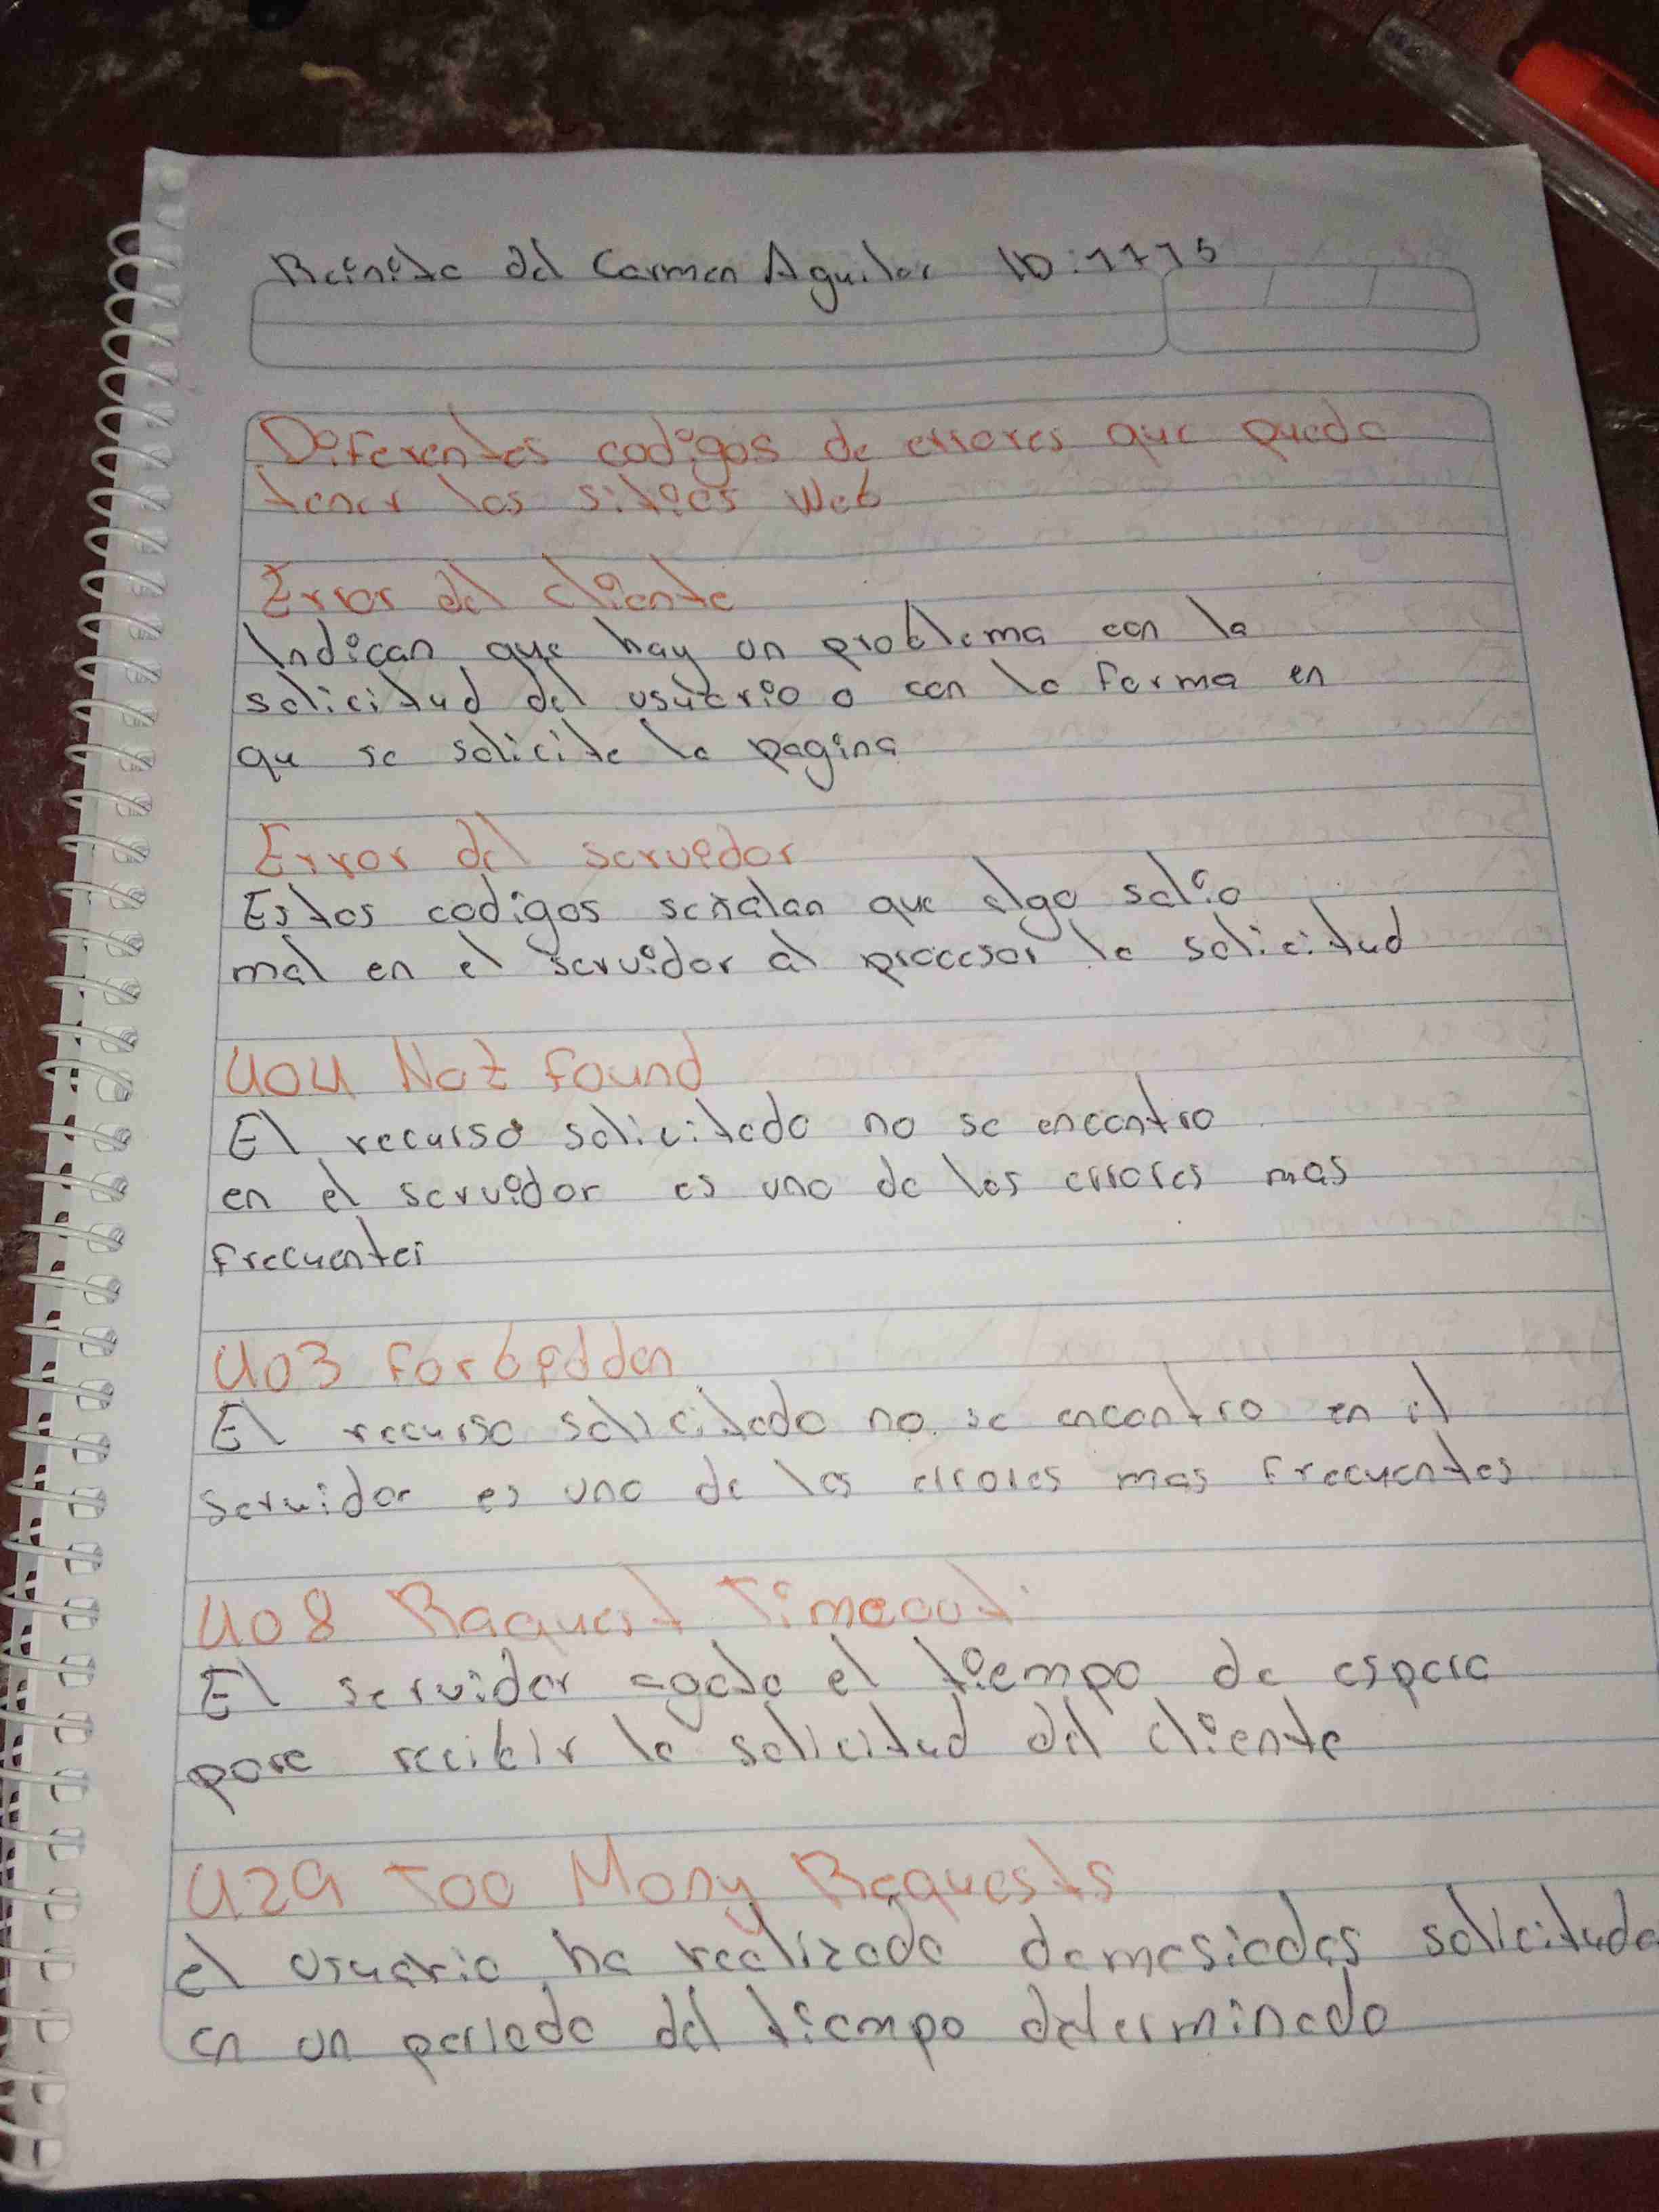 Reinita del Carmen Aguilar ID: 1775
Diferentes codigos de errores que puede
tener los sitios Web
Error del cliente
Indican que hay un problema con la
solicitud del usuario o con la forma en
qu se solicite la pagina
Error del servidor
Estos codigos señalan que algo salio
mal en el servidor al procesar la solicitud
404 Not found
El recurso solicitado no se encontro
en el servidor es uno de los errores mas
frecuentes
403 forbidden
El recurso solicitado no se encontro en el
servidor es uno de los errores mas frecuentes
408 Raquest Timeout
El servidor agota el tiempo de espera
para recibir la solicitud del cliente
429 Too Many Requests
el usuario ha realizado demasiadas solicitude
en un periodo del tiempo determinado